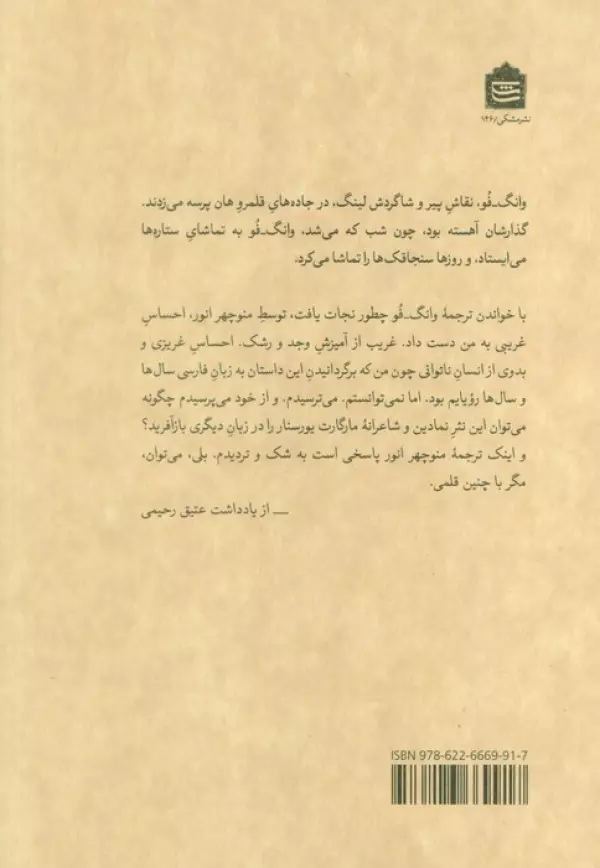 نشرمشکی/۱۴۶
وانگ‌ـ‌فُو، نقاشِ پیر و شاگردش لینگ، در جاده‌هایِ قلمروِ هان پرسه می‌زدند.
گذارشان آهسته بود، چون شب که می‌شد، وانگ‌ـ‌فُو به تماشایِ ستاره‌ها
می‌ایستاد، و روزها سنجاقک‌ها را تماشا می‌کرد.
با خواندنِ ترجمهٔ وانگ‌ـ‌فُو چطور نجات یافت، توسطِ منوچهر انور، احساسِ
غریبی به من دست داد. غریب از آمیزشِ وجد و رشک. احساسِ غریزی و
بدوی از انسانِ ناتوانی چون من که برگردانیدنِ این داستان به زبانِ فارسی سال‌ها
و سال‌ها رؤیایم بود. اما نمی‌توانستم. می‌ترسیدم. و از خود می‌پرسیدم چگونه
می‌توان این نثرِ نمادین و شاعرانهٔ مارگارت یورسنار را در زبانِ دیگری بازآفرید؟
و اینک ترجمهٔ منوچهر انور پاسخی است به شک و تردیدم. بلی، می‌توان،
مگر با چنین قلمی.
ــ از یادداشت عتیق رحیمی
ISBN 978-622-6669-91-7